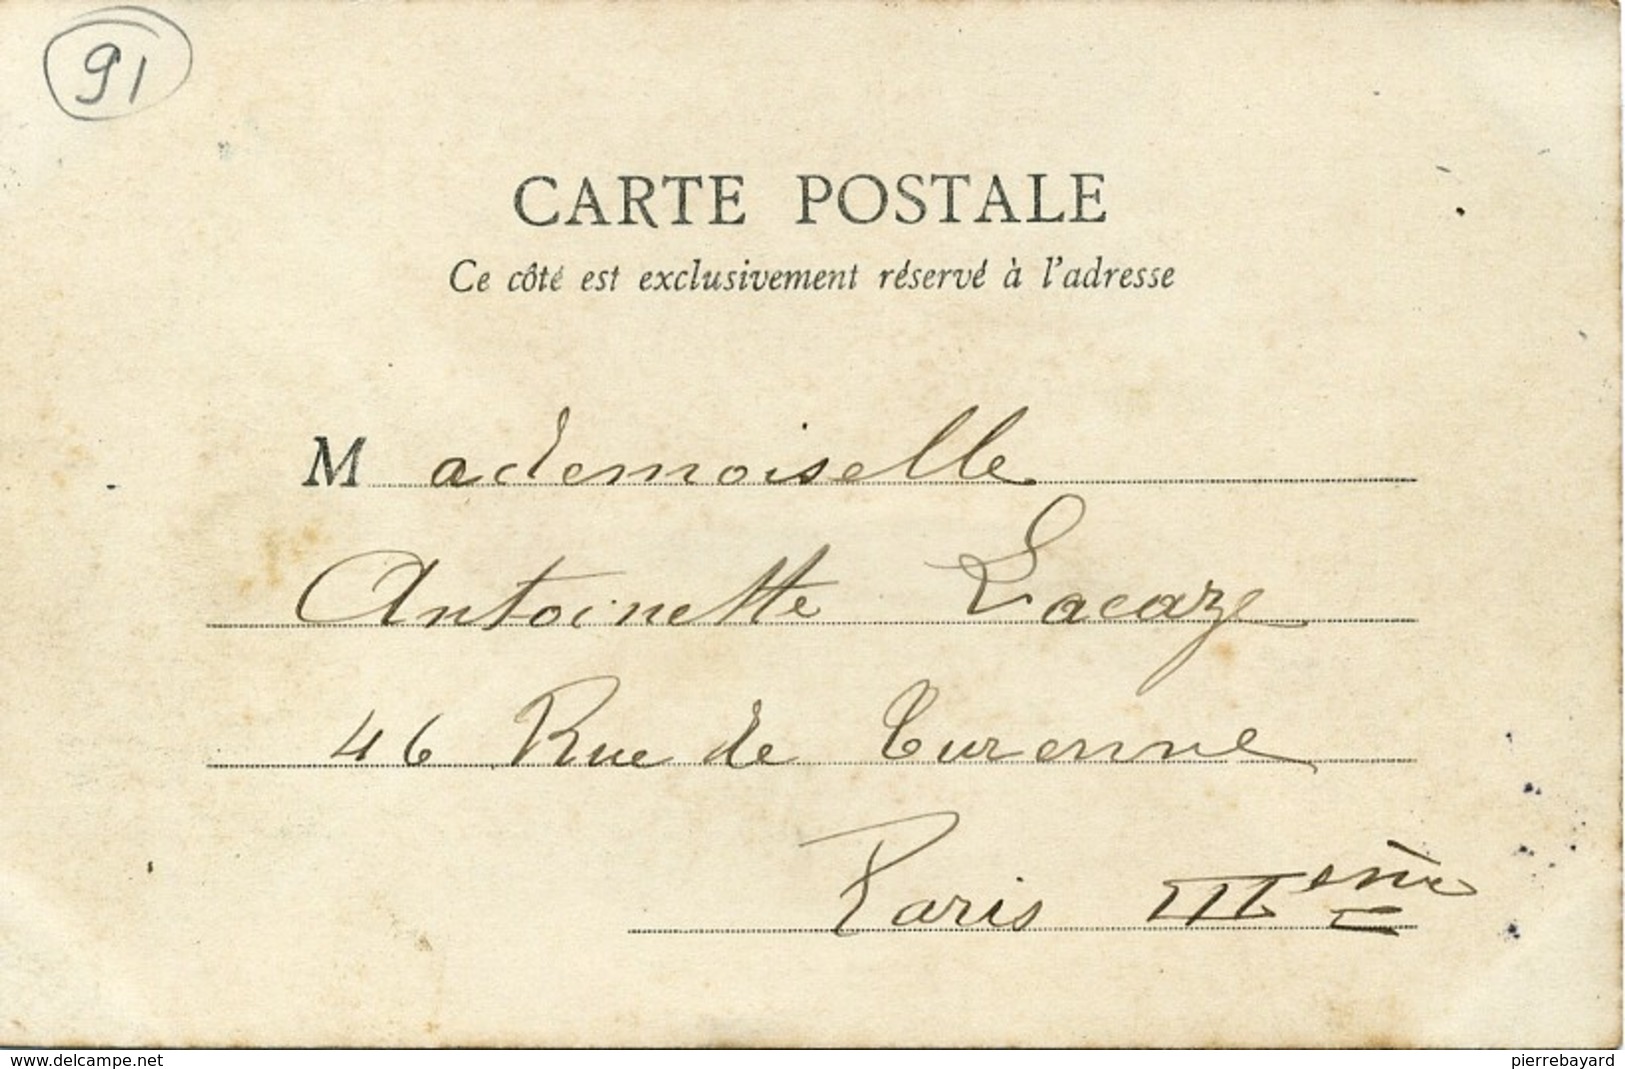 91
CARTE POSTALE
Ce côté est exclusivement réservé à l'adresse
Mademoiselle
Antoinette Lacaze
46 Rue de Turenne
Paris IIIème
www.delcampe.net
pierrebayard